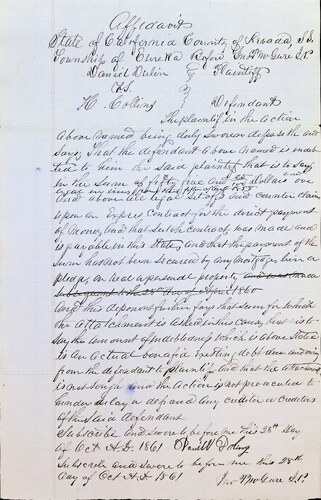 Affidavit
State of California County of Nevada, S.S.
Township of Eureka Before Jno McGuire J.P.
Daniel Dulin Plaintiff
vs.
H. Collins Defendant
The plaintiff in the Action
above named being duly sworn deposeth and
says, That the defendant above named is indeb
ted to him the said plaintiff that is to say
in the Sum of fifty five and dollars over
and above all legal set offs and counter claims
upon an express contract for the direct payment
of money and that such contract was made and
is payable in this State, and that the payment of the
sum has not been secured by any mortgage lien or
pledge, on real or personal property and was made
subsequent to the 28th day of April 1860
And this deponent further says that sum for which
the Attachment is asked in this cause, that is to
say the amount of indebtedness which is above stated
is an Actual bona fide existing debt due and owing
from the defendant to plaintiff, and that the attachment
is not sought and the action is not prosecuted to
hinder delay or defraud any creditor or creditors
of the said defendant
Subscribe and swore to before me this 28th day
of Oct A.D. 1861
Subscribe and swore to before me this 28th
day of Oct A.D. 1861 Jno McGuire J.P.